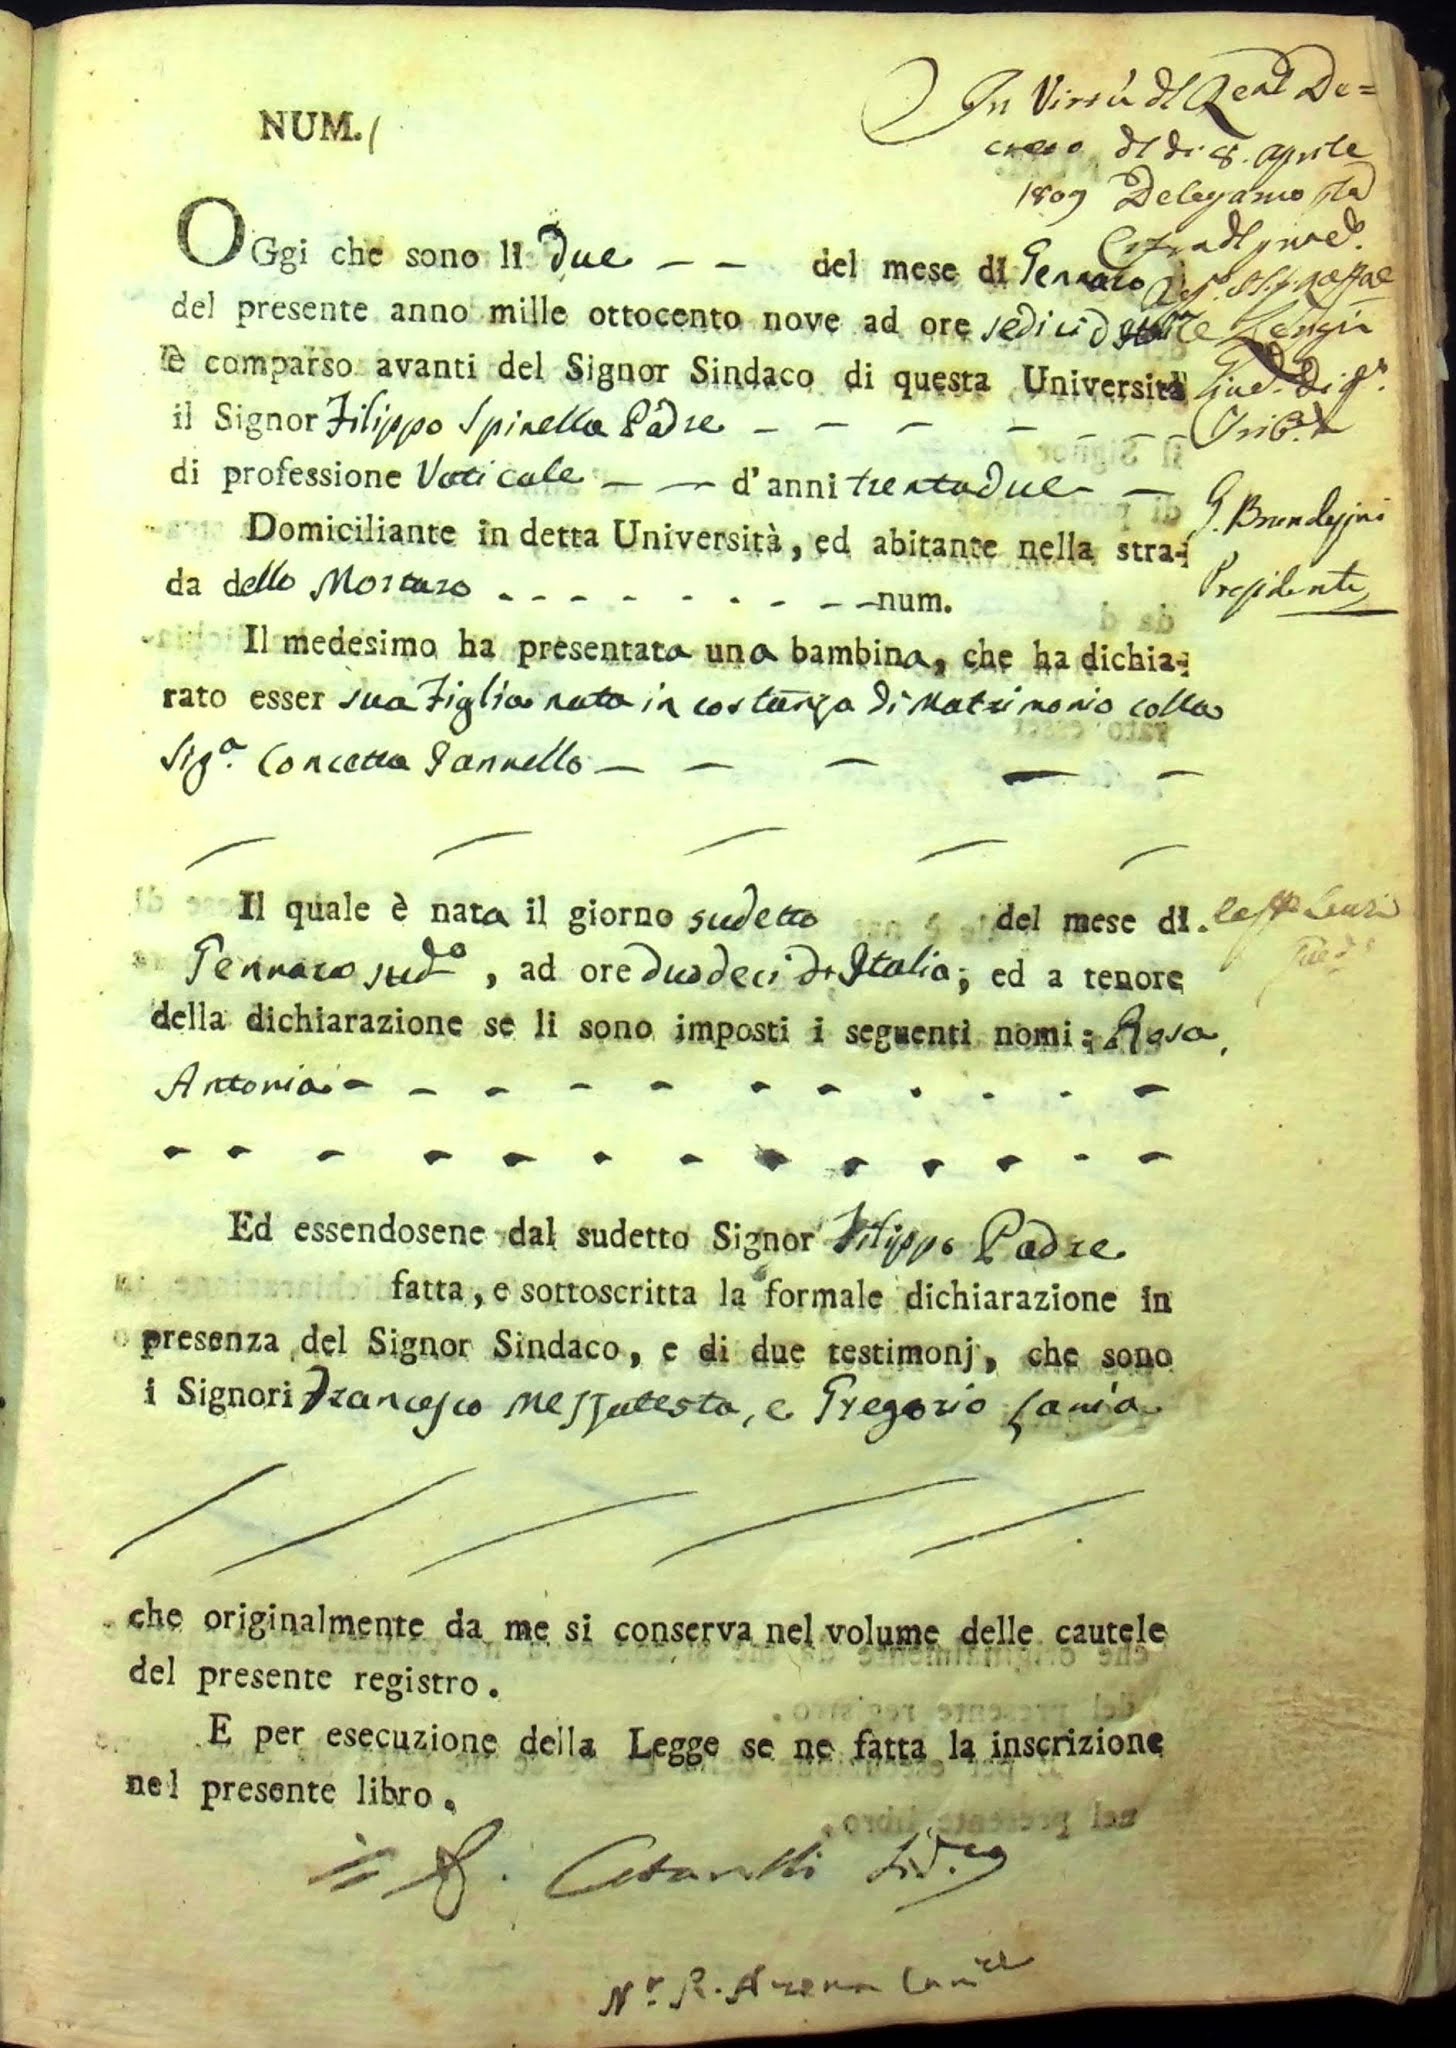 NUM. 1
In Virtù dl Real De=
creto dl di 8. aprile
1809 Delegamo
OGgi che sono li due — — del mese di Gennaro
del presente anno mille ottocento nove ad ore sedici d
è comparso avanti del Signor Sindaco di questa Università
il Signor Filippo Spinella Padre — — — — — —
di professione Vaticale — — d'anni trentadue — —
Domiciliante in detta Università, ed abitante nella stra-
G. Brundesini
da dello Mortaro - - - - - - - - - num.
Presidente
Il medesimo ha presentata una bambina, che ha dichia-
rato esser sua Figlia nata in costanza di Matrimonio colla
Sig.a Concetta Iannello — — — — —
Il quale è nata il giorno sudetto del mese di.
Gennaro sud.o, ad ore duodeci d' Italia; ed a tenore
della dichiarazione se li sono imposti i seguenti nomi: Rosa,
Antonia - - - - - - - - - - -
Ed essendosene dal sudetto Signor Filippo Padre
fatta, e sottoscritta la formale dichiarazione in
presenza del Signor Sindaco, e di due testimonj, che sono
i Signori Francesco Mezzatesta, e Gregorio Lania
che originalmente da me si conserva nel volume delle cautele
del presente registro.
E per esecuzione della Legge se ne fatta la inscrizione
nel presente libro.
Sid.co
N.r R. Arena Canc.re